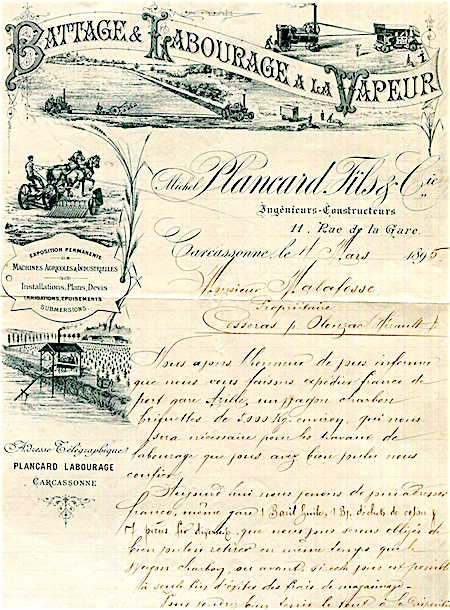 BATTAGE & LABOURAGE A LA VAPEUR
Michel Plancard Fils & Cie
Ingénieurs-Constructeurs
11, Rue de la Gare.
Carcassonne, le 4 Mars 1895
Monsieur Malafosse
Propriétaire
Cesseras p Olonzac (Hérault)
EXPOSITION PERMANENTE
DE
MACHINES AGRICOLES & INDUSTRIELLES
Installations, Plans, Devis
IRRIGATIONS, EPUISEMENTS
SUBMERSIONS.
Adresse Télégraphique
PLANCARD LABOURAGE
CARCASSONNE
Nous avons l'honneur de vous informer
que nous vous faisons expédier franco de
port gare Azille, un wagon charbon
briquettes de 5000 Kg. environ, qui nous
sera nécessaire pour les travaux de
labourage que vous avez bien voulu nous
confier.
Aujourd'hui nous venons de vous adresser
franco, même gare 1 Baril huile, 1 Bl. déchets de coton &
7 pièces fer que nous vous serons obligés de
bien vouloir retirer en même temps que le
wagon charbon ou avant, si cela vous est possible
à seule fin d'éviter des frais de magasinage.
Vous voudrez bien tenir le tout à